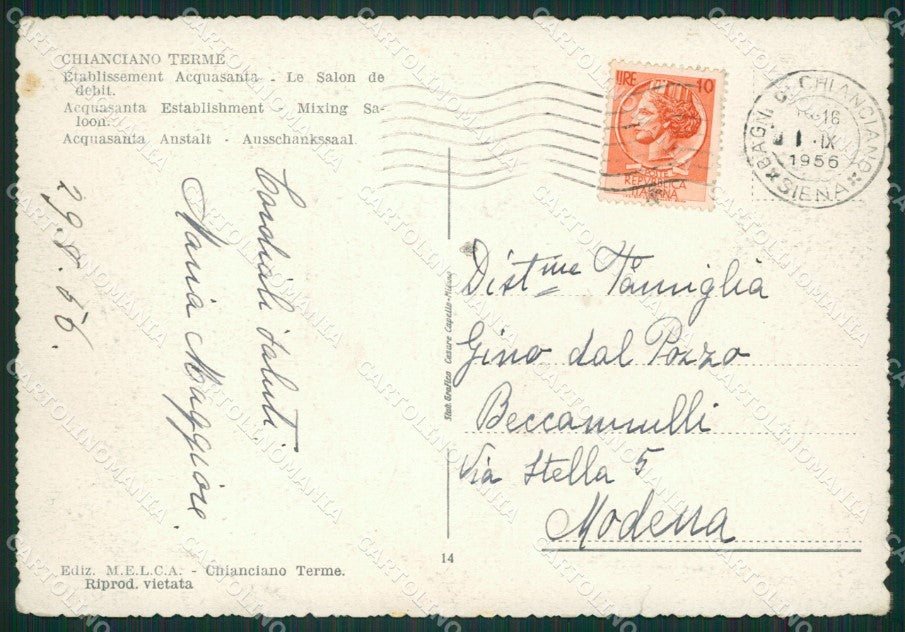 CHIANCIANO TERME
Établissement Acquasanta - Le Salon de
débit.
Acquasanta Establishment - Mixing Sa-
loon.
Acquasanta Anstalt - Ausschankssaal
LIRE 10
POSTE
REPVBBLICA
ITALIANA
BAGNI DI CHIANCIANO
16
1 · IX
1956
SIENA
29.8.56.
Cordiali saluti.
Maria Maggiore.
Stab. Grafico Cesare Capello - Milano
Dist.me Famiglia
Gino dal Pozzo
Beccamulli
Via Stella 5
Modena
14
Ediz. M.E.L.C.A. - Chianciano Terme.
Riprod. vietata
CARTOLINOMANIA